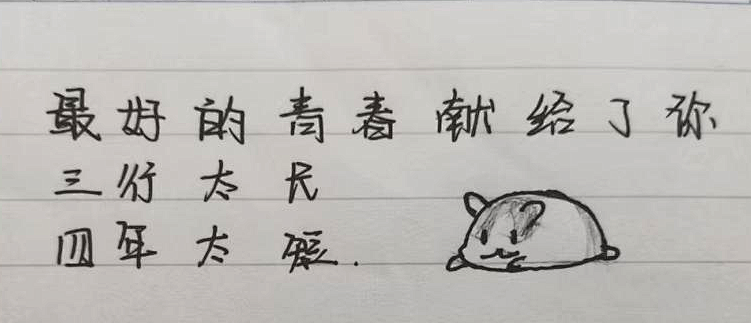 最好的青春献给了你
三行太长
四年太短.